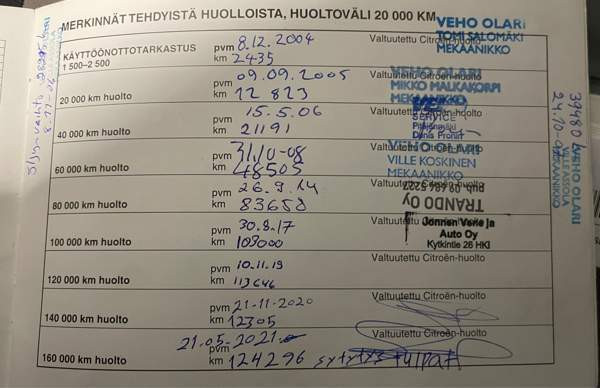 MERKINNÄT TEHDYISTÄ HUOLLOISTA, HUOLTOVÄLI 20 000 KM
VEHO OLARI
TOMI SALOMÄKI
MEKAANIKKO
KÄYTTÖÖNOTTOTARKASTUS
1 500–2 500
pvm 8.12.2004
km 2435
Valtuutettu Citroën-huolto
20 000 km huolto
pvm 09.09.2005
km 12 823
Valtuutettu Citroën-huolto
VEHO OLARI
MIKKO MALKAKORPI
MEKAANIKKO
40 000 km huolto
pvm 15.5.06
km 21191
Valtuutettu Citroën-huolto
SERVICE
Pitäjänmäki
60 000 km huolto
pvm 31.10-08
km 48505
Valtuutettu Citroën-huolto
VEHO OLARI
VILLE KOSKINEN
MEKAANIKKO
80 000 km huolto
pvm 26.9.14
km 83658
Valtuutettu Citroën-huolto
TRANDO Oy
100 000 km huolto
pvm 30.8.17
km 103000
Valtuutettu Citroën-huolto
Jonnen Verie ja
Auto Oy
Kytkintie 26 HKI
120 000 km huolto
pvm 10.11.19
km 113646
Valtuutettu Citroën-huolto
140 000 km huolto
pvm 21-11-2020
km 12305
Valtuutettu Citroën-huolto
160 000 km huolto
pvm 21.05.2021
km 124296 sytytys tulpat
Valtuutettu Citroën-huolto
39480
VEHO OLARI
MEKAANIKKO